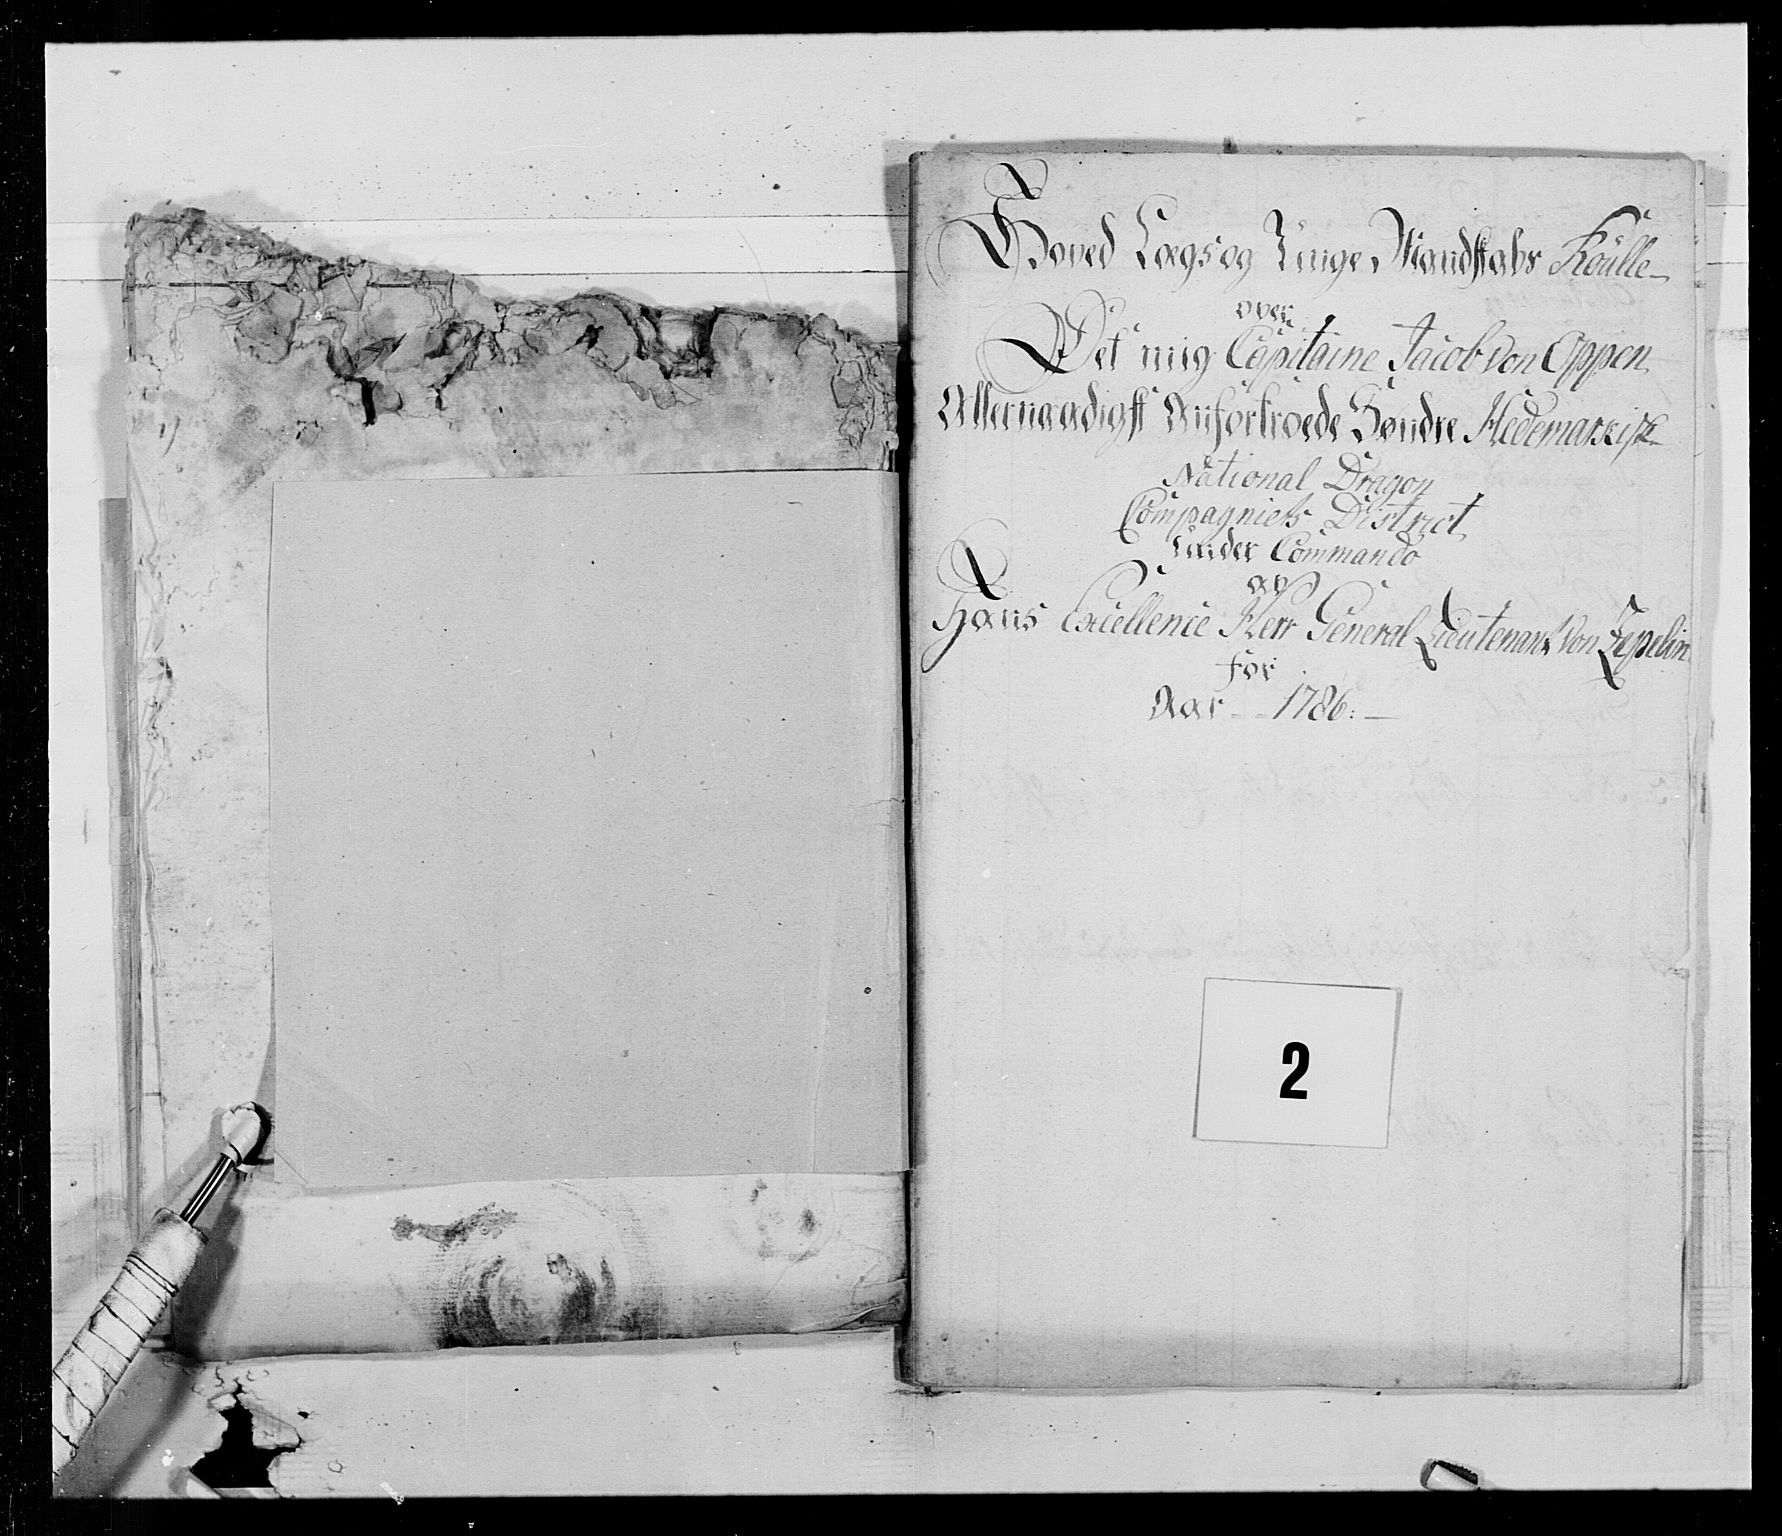 Hoved Lægs og Unge Mandskabs Roulle
over
Det mig Capitaine Jacob von Oppen
Allernaadigst Anfortroede Søndre Hedemarkisk
National Dragon
Compagniets District
Under Commando
af
Hans Excellence Herr General Lieutenant von Zepelin
for
Aar - - 1786: -
2